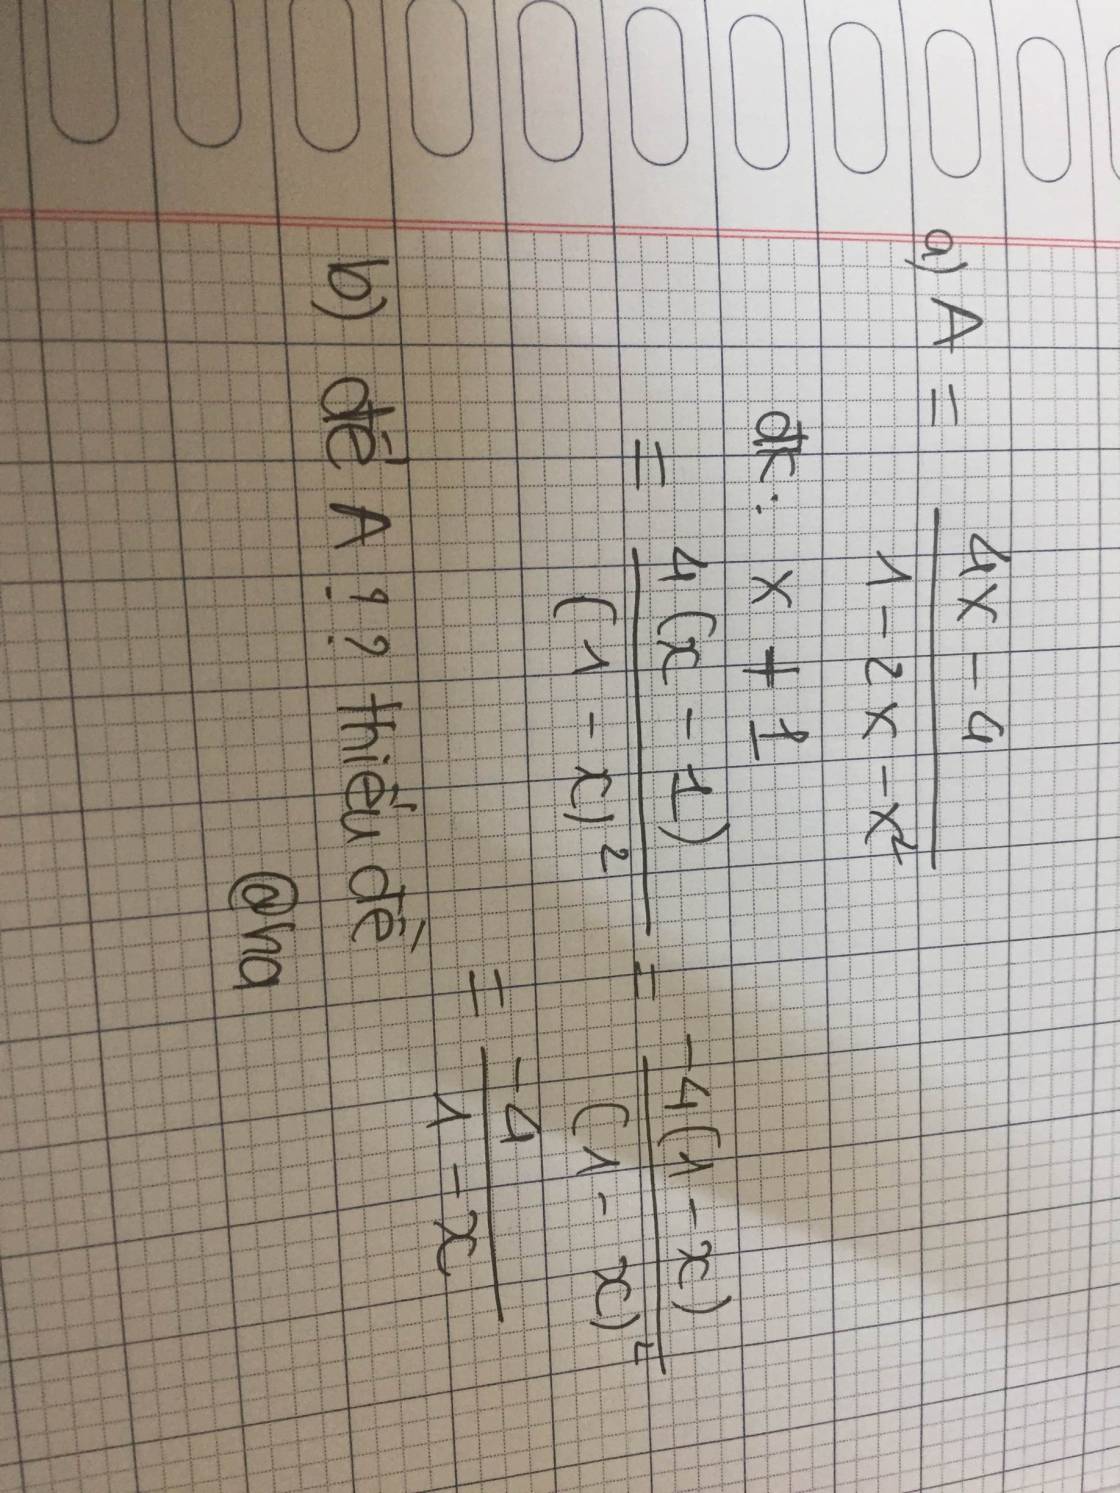 a) A = 4x - 4 / 1 - 2x - x²
đk: x ≠ 1
= 4(x - 1) / (1 - x)² = -4(1 - x) / (1 - x)²
= -4 / 1 - x
b) để A !?? thiếu đề
@ha